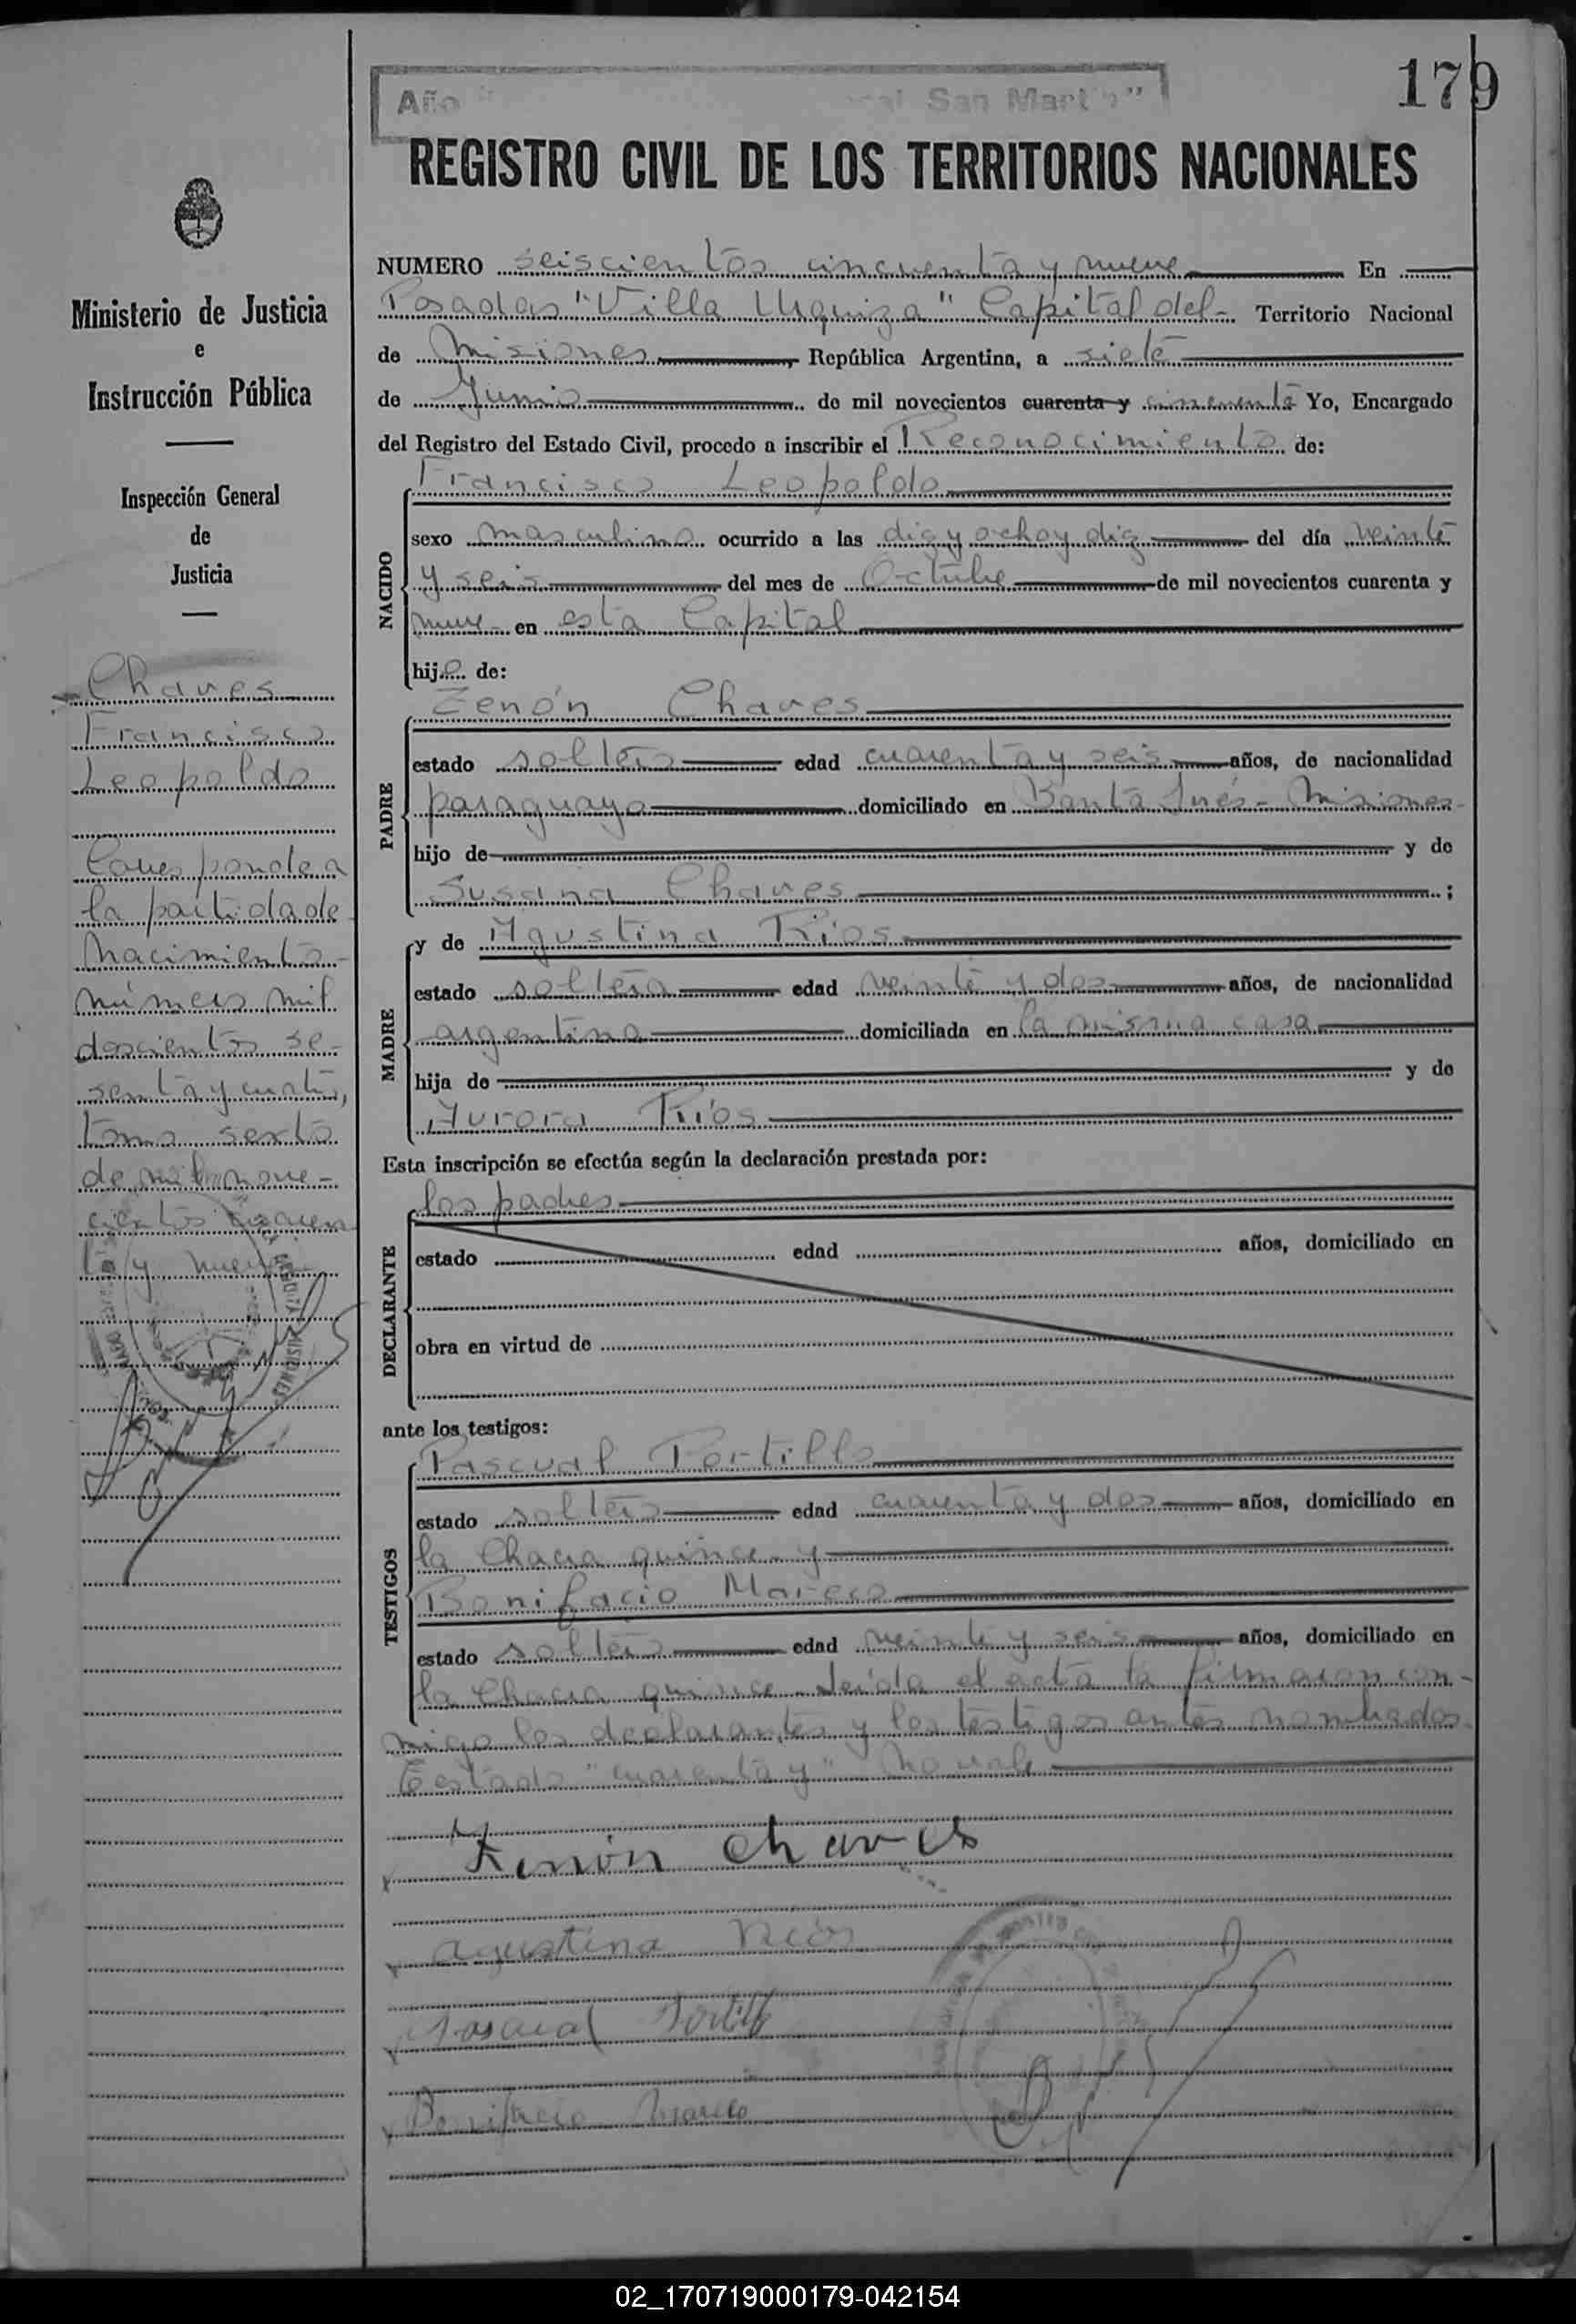 179
Año San Martín"
REGISTRO CIVIL DE LOS TERRITORIOS NACIONALES
Ministerio de Justicia
e
Instrucción Pública
Inspección General
de
Justicia
Chaves
Francisco
Leopoldo
Corresponde a
la partida de
Nacimiento
número mil
doscientos se-
senta y cuatro,
tomo sexto
de mil nove-
cientos cuaren
ta y nueve
NUMERO seiscientos cincuenta y nueve En
Posadas "Villa Urquiza" Capital del Territorio Nacional
de Misiones, República Argentina, a siete
de Junio de mil novecientos cuarenta y cincuenta Yo, Encargado
del Registro del Estado Civil, procedo a inscribir el Reconocimiento de:
NACIDO
Francisco Leopoldo
sexo masculino ocurrido a las diez y ocho y diez del día veinte
y seis del mes de Octubre de mil novecientos cuarenta y
nueve en esta Capital
hijo de:
PADRE
Zenón Chaves
estado soltero edad cuarenta y seis años, de nacionalidad
paraguaya domiciliado en Santa Inés - Misiones
hijo de y de
Susana Chaves ;
MADRE
y de Agustina Ríos
estado soltera edad veinte y dos años, de nacionalidad
argentina domiciliada en la misma casa
hija de y de
Aurora Ríos
Esta inscripción se efectúa según la declaración prestada por:
DECLARANTE
los padres
estado edad años, domiciliado en
obra en virtud de
ante los testigos:
TESTIGOS
Pascual Portillo
estado soltero edad cuarenta y dos años, domiciliado en
la Chacra quince y
Bonifacio Mareco
estado soltero edad veinte y seis años, domiciliado en
la Chacra quince. Leída el acta la firmaron con-
migo los declarantes y los testigos antes nombrados.
Testado "cuarenta y" No vale
Zenón Chaves
Agustina Ríos
Pascual Portillo
Bonifacio Mareco
02_170719000179-042154